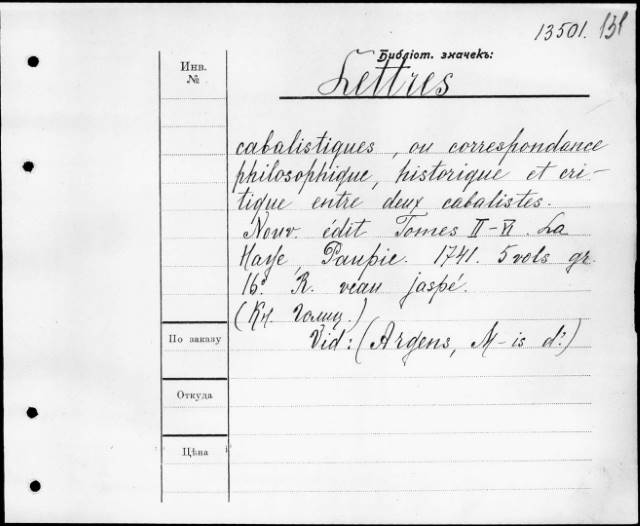 13501. 131
Библіот. значекъ:
Инв.
№
Lettres
cabalistiques, ou correspondance
philosophique, historique et cri-
tique entre deux cabalistes.
Nouv. édit Tomes II-VI. La
Haye, Paupie. 1741. 5 vols gr.
16º R. veau jaspé.
(Кн. Голиц.)
Vid: (Argens, M-is d:)
По заказу
Откуда
Цѣна